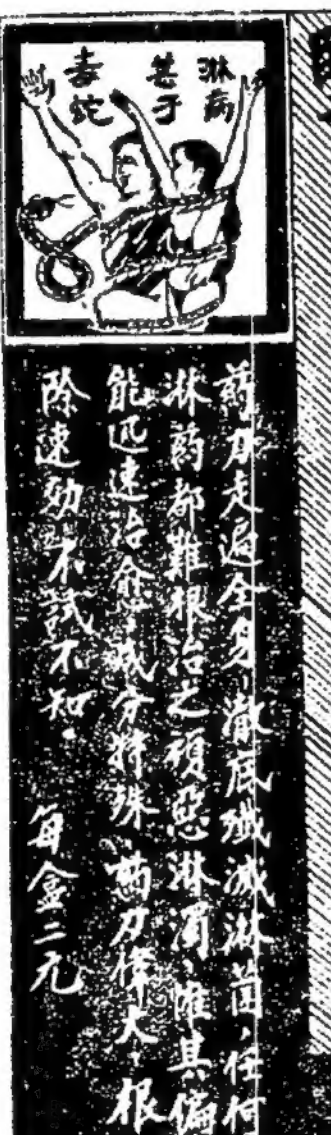 淋病
甚于
毒蛇
药力走遍全身、澈底殲滅淋菌、任何
淋药都難根治之頑惡淋濁、惟其偏
能迅速治愈、成分特殊、药力偉大、根
除速効、不試不知。　每盒二元